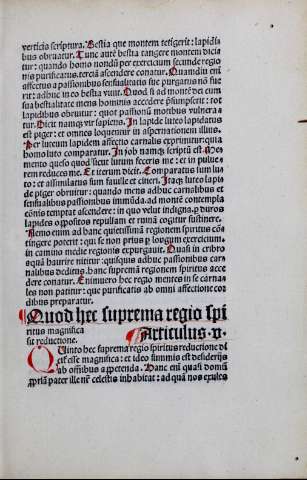 verticis scriptura. Bestia que montem tetigerit: lapidi-
bus obruatur. Tunc autē bestia tangere montem dici-
tur: quando homo nondū per exercicium secunde regio
nis purificatus, terciā ascendere conatur. Quamdiu eni
affectus a passionibus sensualitatis sue purgatus nō fue
rit: adhuc in eo bestia viuit. Quod si ad montē dei cum
sua bestialitate mens hominis accedere psumpserit: tot
lapidibus obruitur: quot passionū motibus vulnera
tur. Dicit namq; vir sapiens. In lapide luteo lapidatus
est piger: et omnes loquentur in aspernationem illius.
Per luteum lapidem affectio carnalis exprimitur: quia
homo luto comparatur. In job namq; scriptū est. Me
mento queso quod sicut lutum feceris me: et in pulue
rem reduces me. Et iterum dicit. Comparatus sum lu
to: et assimilatus sum fauille et cineri. Itaq; luteo lapi
de piger obruitur: quando mens adhuc carnalibus et
sensualibus passionibus immūda. ad montē contempla
cōnis temptat ascendere: in quo velut indigna, p duros
lapides oppositos repulsam et ruinā cogitur sustinere.
Nemo enim ad hanc quietissimā regionem spiritus cōn
tingere poterit: qui se non prius p longum exercicium,
in camino medie regionis expurgauit. Quasi in cribro
aquā haurire nititur: quisquis adhuc passionibus car-
nalibus deditus. hanc supremā regionem spiritus acce
dere conatur. Enimuero hec regio mentes in se carna-
les non patitur: que purificatis ab omni affectione cor
dibus preparatur.
Quod hec suprema regio spi
ritus magnifica Articulus .v.
sit reductione.
Quinto hec suprema regio spiritus reductione dī
cit esse magnifica: et ideo summis est desiderijs
ab omnibus appetenda. Hanc eni quasi domū
p priā pater ille nr̄ celestis inhabitat: ad quā nos exules